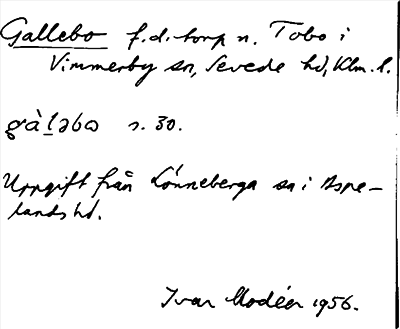 Gallebo f.d. torp n. Tobo i
Vimmerby sn, Sevede hd, Klm. l.
gàləbω s. 30.
Uppgift från Lönneberga sn i Aspe-
lands hd.
Ivar Modéer 1956.